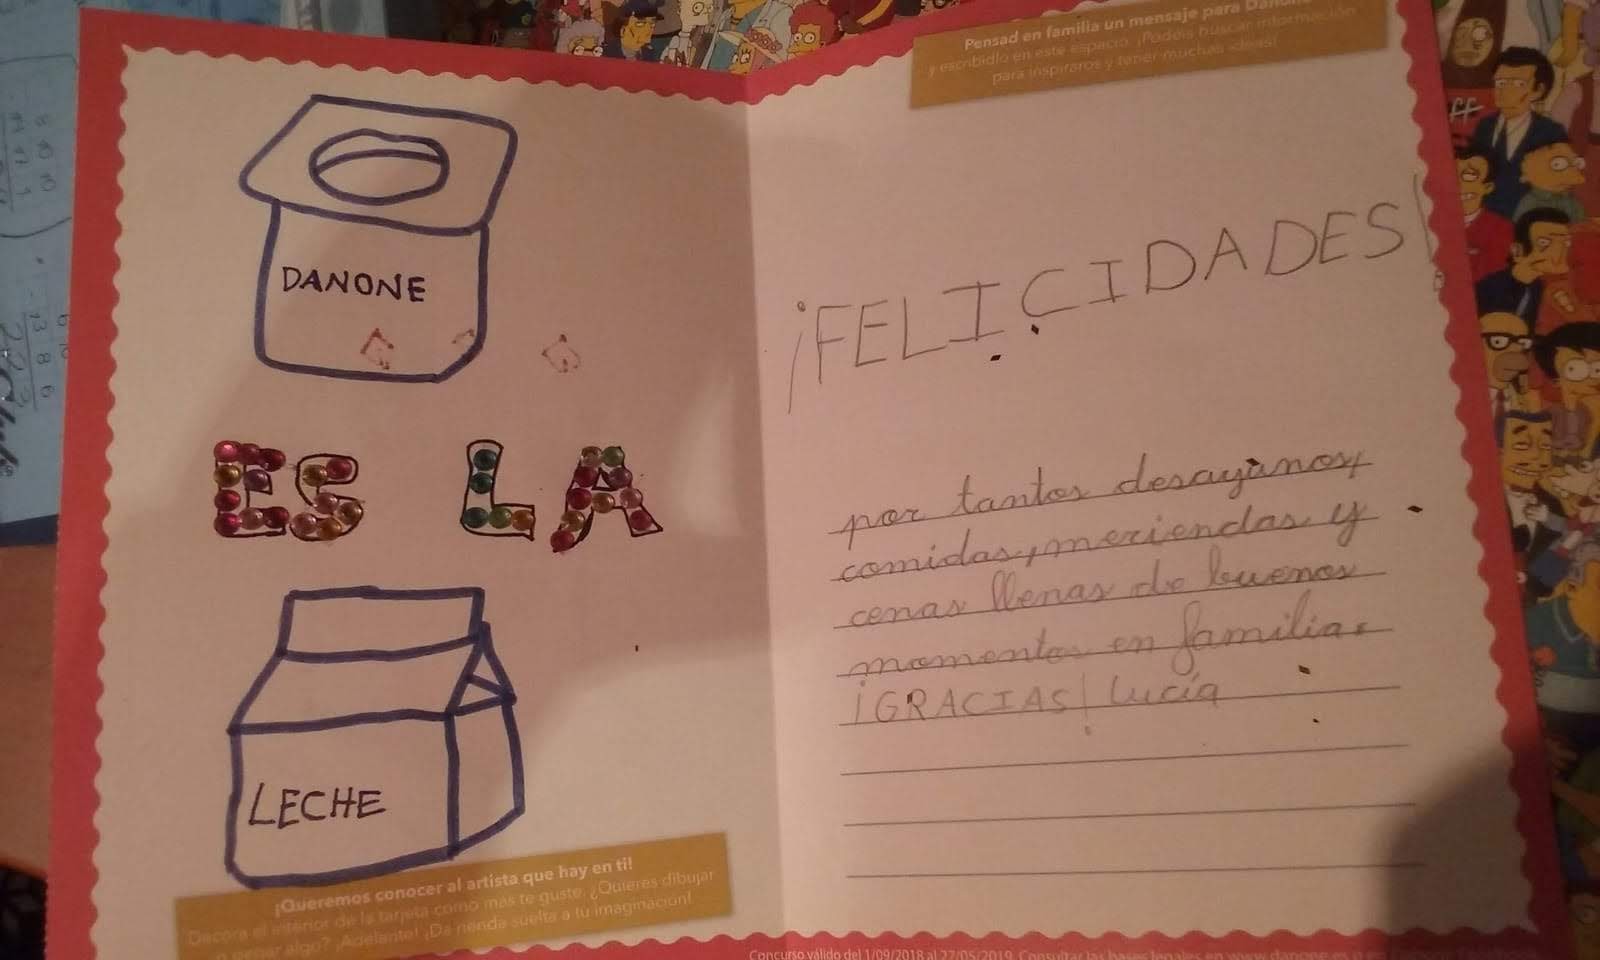 DANONE
ES LA
LECHE
¡Queremos conocer al artista que hay en ti!
Decora el interior de la tarjeta como más te guste. ¿Quieres dibujar
o pegar algo? ¡Adelante! ¡Da rienda suelta a tu imaginación!
Pensad en familia un mensaje para Danone
y escribidlo en este espacio. ¡Podéis buscar información
para inspiraros y tener muchas ideas!
¡FELICIDADES!
por tantos desayunos,
comidas, meriendas y
cenas llenas de buenos
momentos en familia.
¡GRACIAS! Lucía
Concurso válido del 1/09/2018 al 27/05/2019. Consultar las bases legales en www.danone.es